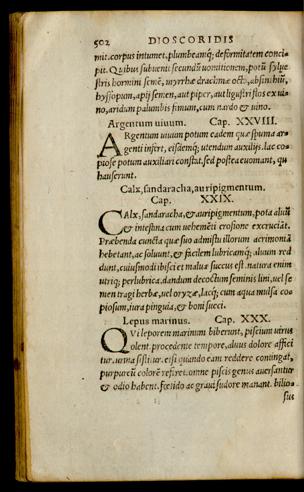 502 DIOSCORIDIS
mit. corpus intumet, plumbeamq́; deformitatem conci-
pit. Quibus subuenit secundū uomitionem, potū sylue
stris hormini semē, myrrhæ drachmæ octo, absinthiū,
hyssopum, apij semen, aut piper, aut ligustri flos ex ui-
no, aridum palumbis fimum, cum nardo & uino.
Argentum uiuum. Cap. XXVIII.
ARgentum uiuum potum eadem quæ spuma ar-
genti infert, eisdémq; utendum auxilijs. lac co-
piose potum auxiliari constat, sed postea euomant, qui
hauserunt.
Calx, sandaracha, auripigmentum.
Cap. XXIX.
CAlx, sandaracha, & auripigmentum, pota aluū
& intestina cum uehemēti erosione excruciāt.
Præbenda cuncta quæ suo admistu illorum acrimoniā
hebetant, ac soluunt, & facilem lubricamq́; aluum red
dunt, cuiusmodi ibisci et maluæ succus est. natura enim
utriq; perlubrica. dandum decoctum seminis lini, uel se
men tragi herbæ, uel oryzæ, lacq́; cum aqua mulsa co-
piosum, iura pinguia, & boni succi.
Lepus marinus. Cap. XXX.
QVi leporem marinum biberunt, piscium uirus
olent. procedente tempore, aluus dolore affici
tur. urina sistitur. et si quando eam reddere contingat,
purpureū colorē refert. omne piscis genus auersantur
& odio habent. fœtido ac graui sudore manant. bilio-
sus